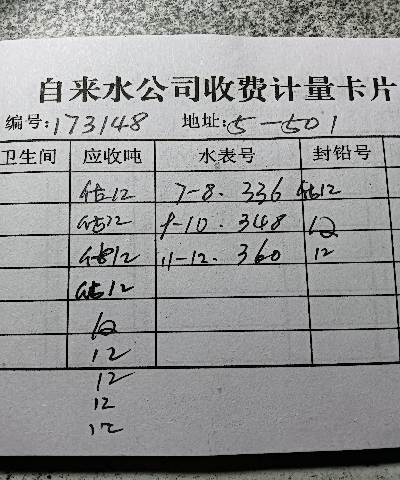 自来水公司收费计量卡片
编号:173148 地址:5-501
卫生间 应收吨 水表号 封铅号
估12 7-8. 336 估12
估12 9-10. 348 12
估12 11-12. 360 12
估12
12
12
12
12
12